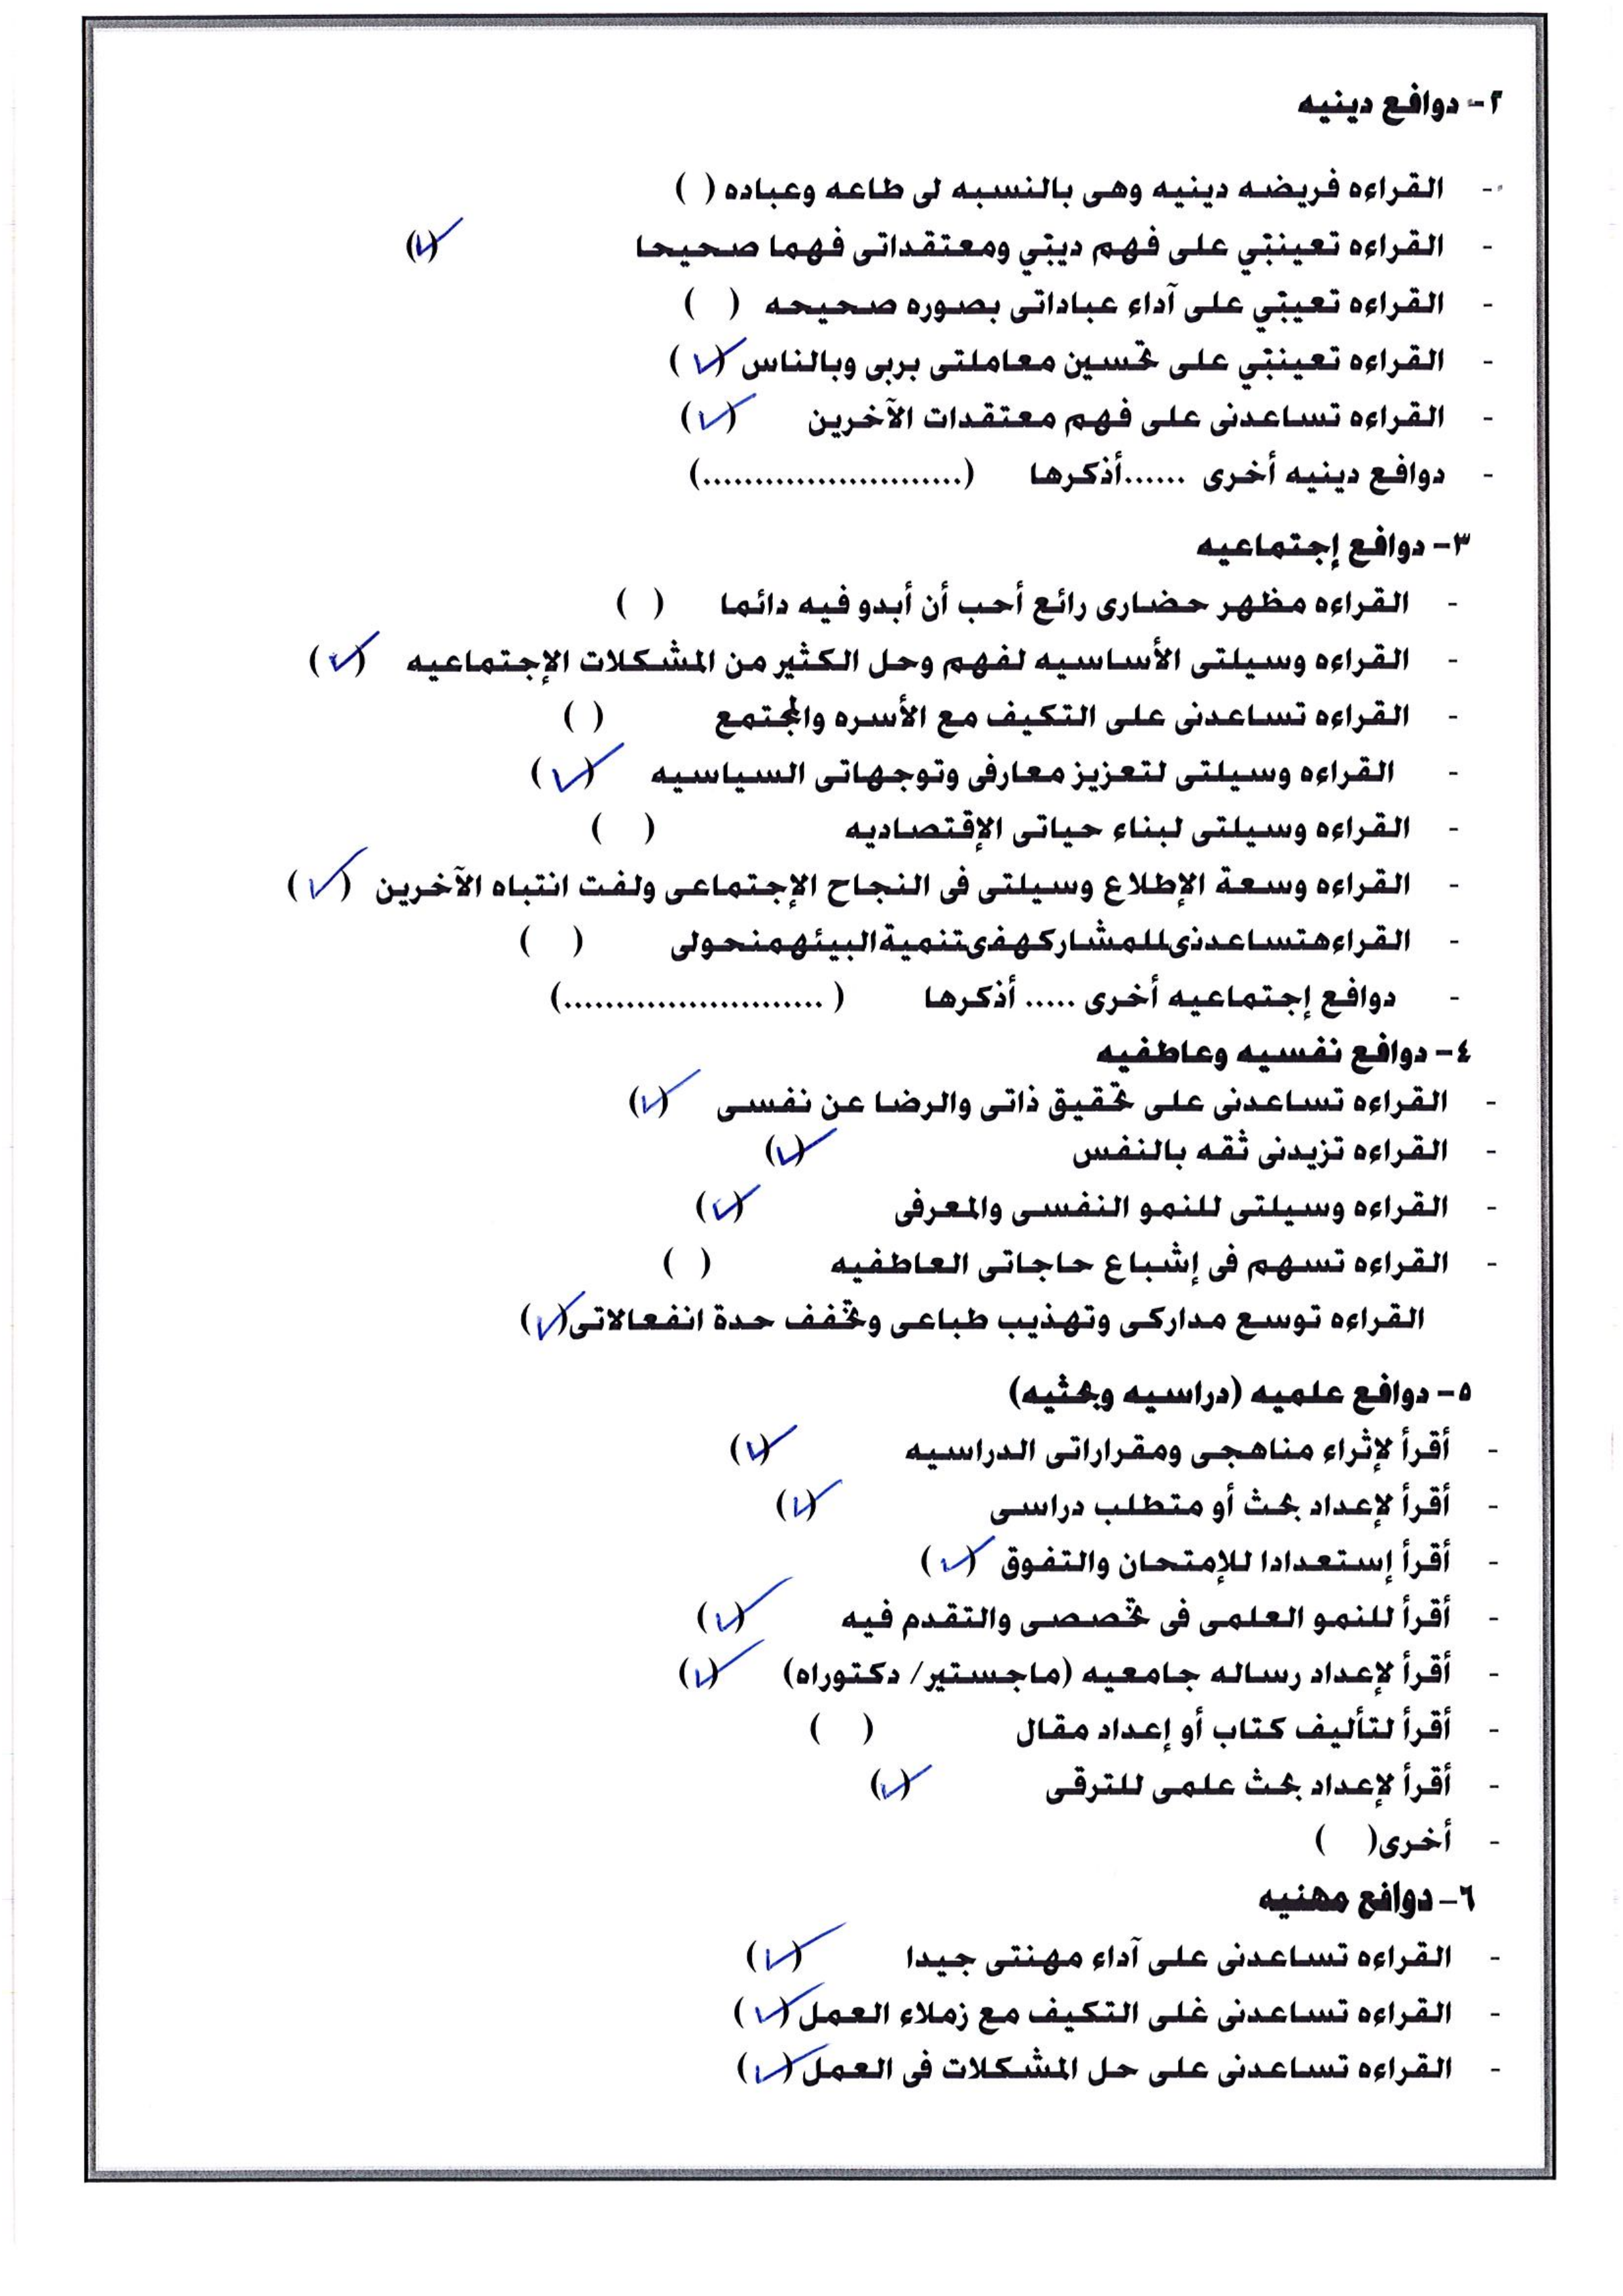 ٢- دوافع دينيه
- القراءه فريضه دينيه وهى بالنسبه لى طاعه وعباده ( )
- القراءه تعيننِي على فهم ديني ومعتقداتى فهما صحيحا (✓)
- القراءه تعيني على آداء عباداتى بصوره صحيحه ( )
- القراءه تعينني على تحسين معاملتى بربى وبالناس (✓)
- القراءه تساعدنى على فهم معتقدات الآخرين (✓)
- دوافع دينيه أخرى ......أذكرها (.........................)
٣- دوافع إجتماعيه
- القراءه مظهر حضارى رائع أحب أن أبدو فيه دائما ( )
- القراءه وسيلتى الأساسيه لفهم وحل الكثير من المشكلات الإجتماعيه (✓)
- القراءه تساعدنى على التكيف مع الأسره والمجتمع ( )
- القراءه وسيلتى لتعزيز معارفى وتوجهاتى السياسيه (✓)
- القراءه وسيلتى لبناء حياتى الإقتصاديه ( )
- القراءه وسعة الإطلاع وسيلتى فى النجاح الإجتماعى ولفت انتباه الآخرين (✓)
- القراءهتساعدنىللمشاركهفىتنميةالبيئهمنحولى ( )
- دوافع إجتماعيه أخرى ..... أذكرها ( .........................)
٤- دوافع نفسيه وعاطفيه
- القراءه تساعدنى على تحقيق ذاتى والرضا عن نفسى (✓)
- القراءه تزيدنى ثقه بالنفس (✓)
- القراءه وسيلتى للنمو النفسى والمعرفى (✓)
- القراءه تسهم فى إشباع حاجاتى العاطفيه ( )
القراءه توسع مداركى وتهذيب طباعى وتخفف حدة انفعالاتى(✓)
٥- دوافع علميه (دراسيه وبحثيه)
- أقرأ لإثراء مناهجى ومقرراتى الدراسيه (✓)
- أقرأ لإعداد بحث أو متطلب دراسى (✓)
- أقرأ إستعدادا للإمتحان والتفوق (✓)
- أقرأ للنمو العلمى فى تخصصى والتقدم فيه (✓)
- أقرأ لإعداد رساله جامعيه (ماجستير/ دكتوراه) (✓)
- أقرأ لتأليف كتاب أو إعداد مقال ( )
- أقرأ لإعداد بحث علمى للترقى (✓)
- أخرى( )
٦- دوافع مهنيه
- القراءه تساعدنى على آداء مهنتى جيدا (✓)
- القراءه تساعدنى غلى التكيف مع زملاء العمل (✓)
- القراءه تساعدنى على حل المشكلات فى العمل (✓)